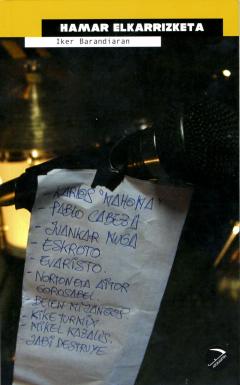 HAMAR ELKARRIZKETA
Iker Barandiaran
KARLOS "MAHOMA"
- PABLO CABEZA
- JUANKAR MUGA
- ESKROTO
- EVARISTO.
- NORTON ETA AITOR
GOROSABEL
- BELEN MIJANGOS
- KIKE TURMIX
- MIKEL KAZALIS.
- JABI DESTRUYE